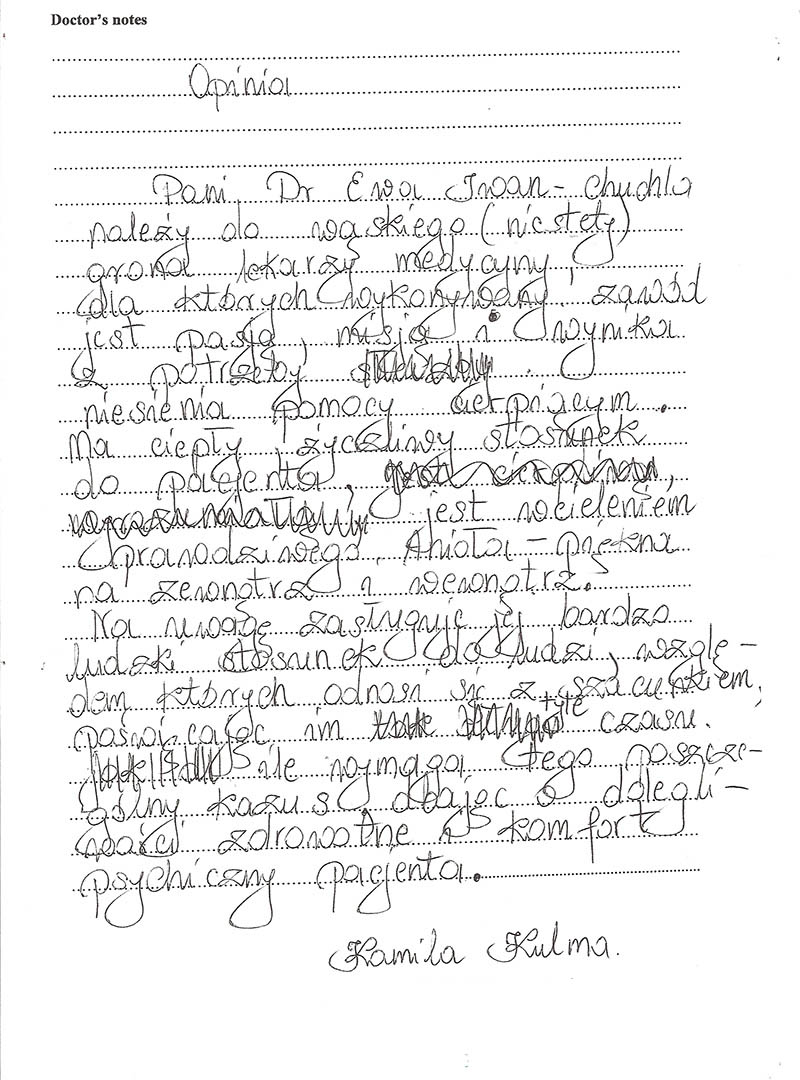 Doctor's notes
Opinia
Pani Dr Ewa Iwan-Chuchla
należy do wąskiego (niestety)
grona lekarzy medycyny,
dla których wykonywany zawód
jest pasją, misją i wynika
z potrzeby
niesienia pomocy cierpiącym.
Ma ciepły, życzliwy stosunek
do pacjenta,
jest wcieleniem
prawdziwego Anioła - piękna
na zewnątrz i wewnątrz.
Na uwagę zasługuje jej bardzo
ludzki stosunek do ludzi, wzglę-
dem których odnosi się z szacunkiem,
poświęcając im tyle czasu.
ile wymaga tego poszcze-
gólny kazus, dbając o dolegli-
wości zdrowotne i komfort
psychiczny pacjenta.
Kamila Kulma.